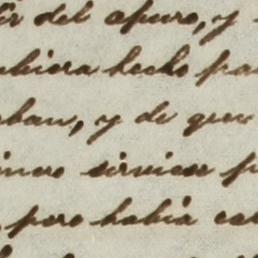 ir del apuro, y
ubiera hecho pa
aban, y de que
inero sirviese p
pero había